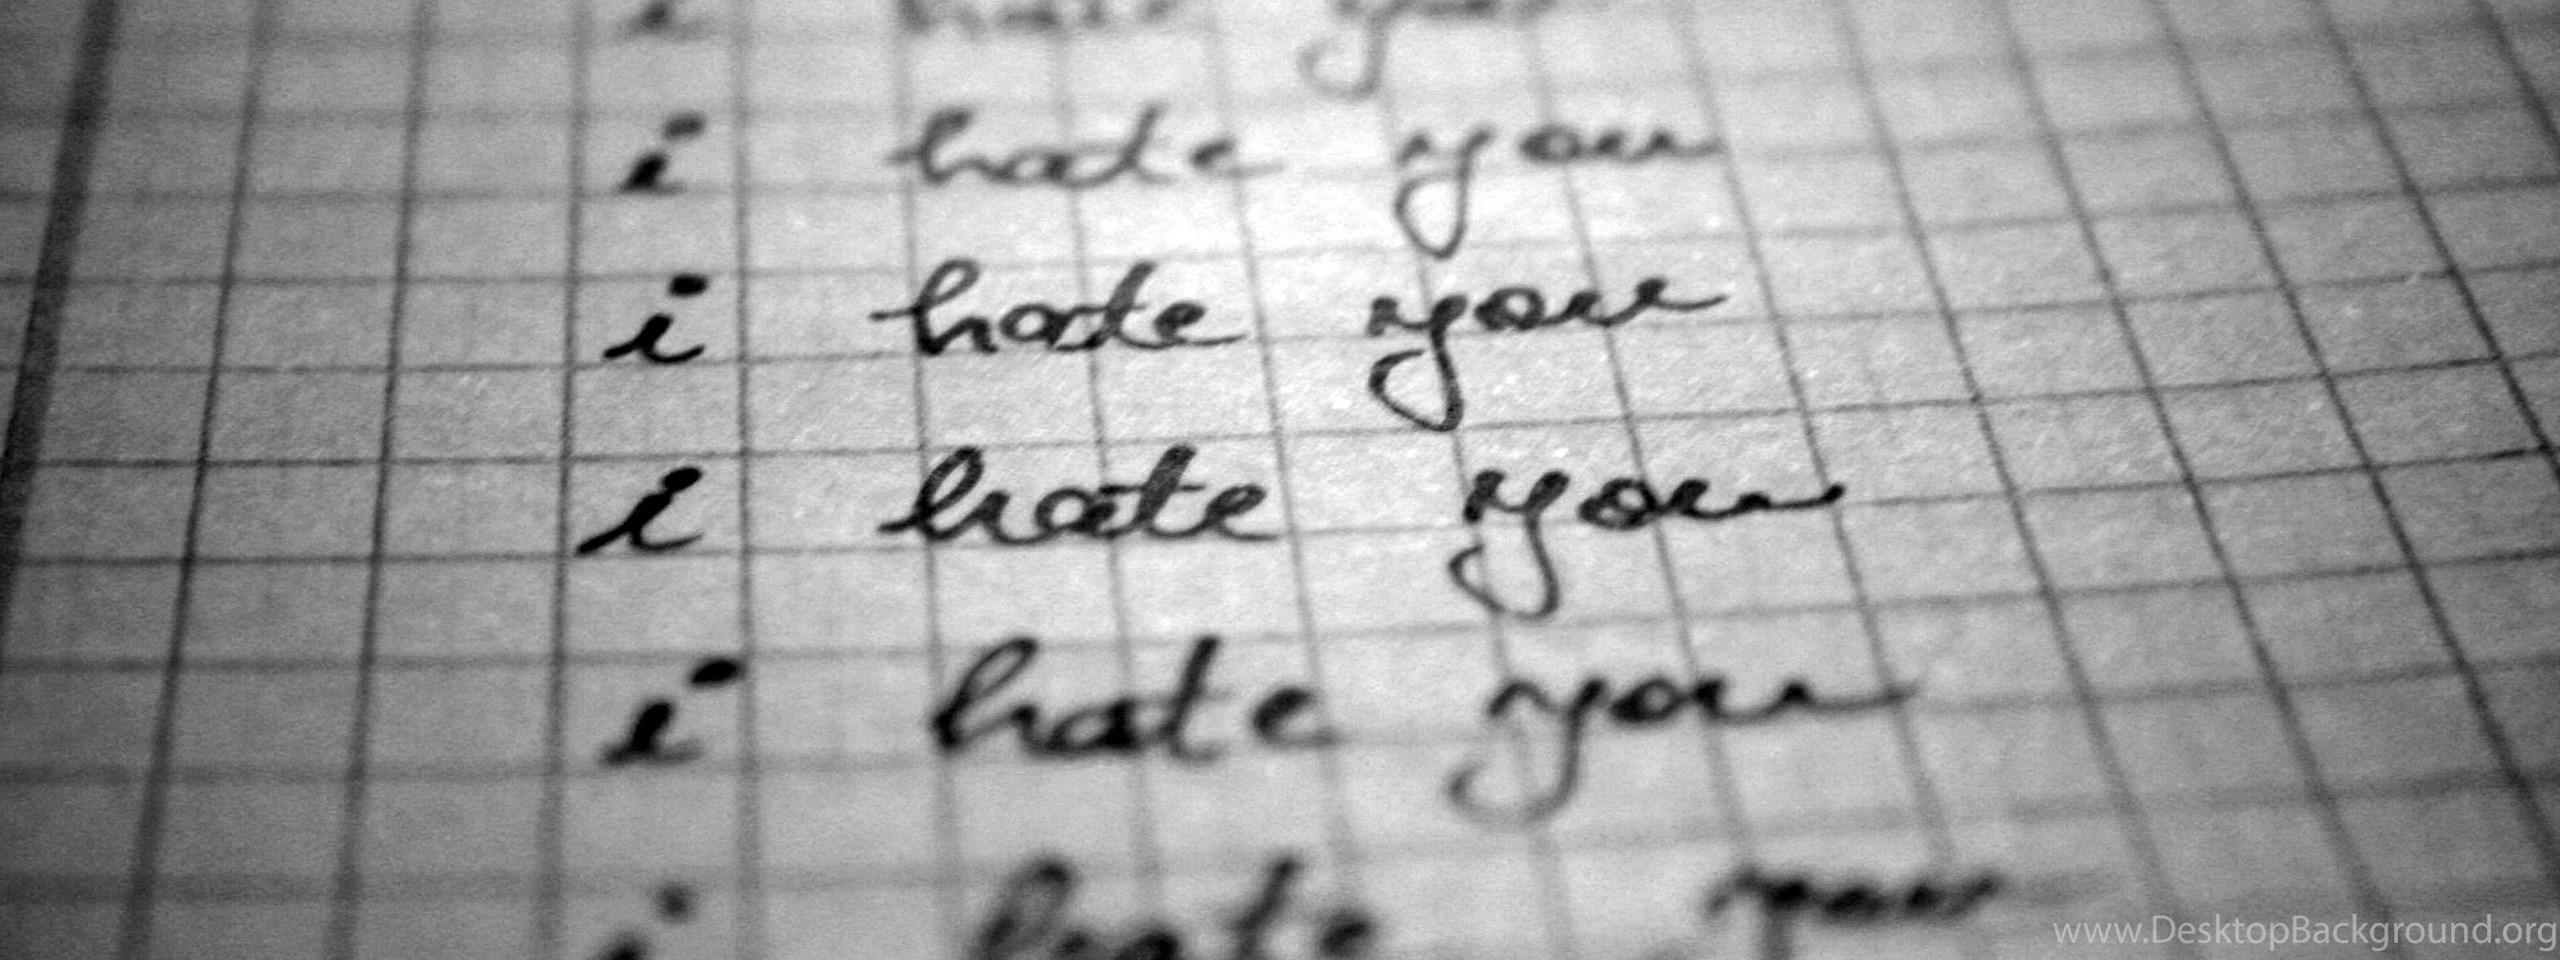 i hate you
i hate you
i hate you
i hate you
i hate you
i hate you
www.DesktopBackground.org